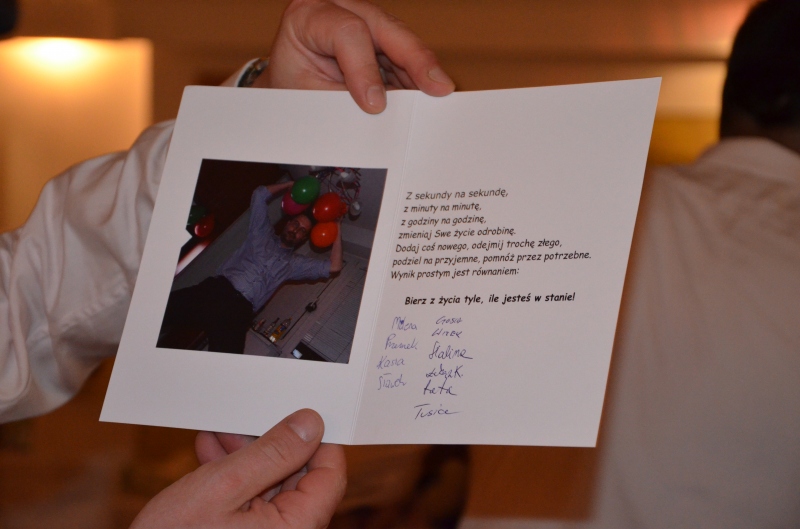 Z sekundy na sekundę,
z minuty na minutę,
z godziny na godzinę,
zmieniaj Swe życie odrobinę.
Dodaj coś nowego, odejmij trochę złego,
podziel na przyjemne, pomnóż przez potrzebne.
Wynik prostym jest równaniem:
Bierz z życia tyle, ile jesteś w stanie!
Halina